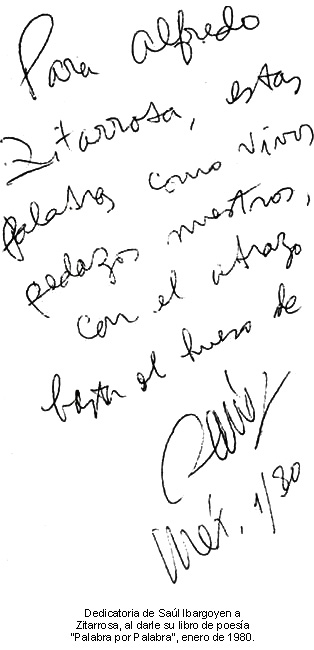 Para Alfredo
Zitarrosa, estas
palabras como vivos
pedazos nuestros,
con el abrazo
hasta el hueso de
Saúl
Méx, 1/80
Dedicatoria de Saúl Ibargoyen a
Zitarrosa, al darle su libro de poesía
"Palabra por Palabra", enero de 1980.